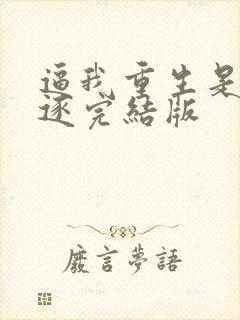 逼我重生是
逐完結版
廢言夢語